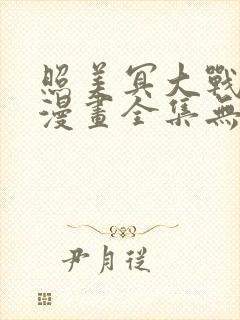 照美冥大戰
漫畫全集無
尹月從